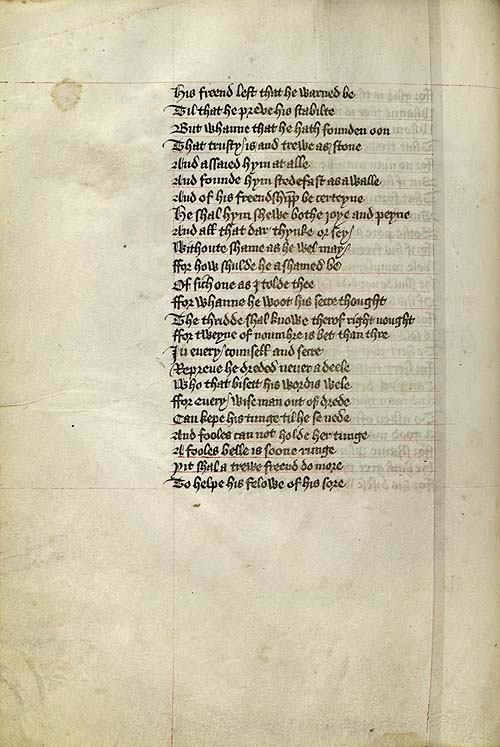 His freend lest that he warned be
Til that he preve his stabilte
But whanne that he hath founden oon
That trusty is and trewe as stone
And assaied hym at alle
And founde hym stedefast as a walle
And of his freendship be certeyne
He shal hym shewe bothe joye and peyne
And all that dar thynke or sey
Withoute shame as he wel may
ffor how shulde he ashamed be
Of sich one as I tolde thee
ffor whanne he woot his secre thought
The thridde shal knowe therof right nought
ffor tweyne of noumbre is bet than thre
In every counsell and secre
Repreve he dreded never a deele
Who that bisett his wordis wele
ffor every wise man out of drede
Can kepe his tunge til he se nede
And fooles can not holde her tunge
A fooles belle is soone runge
Yit shal a trewe freend do more
To helpe his felowe of his sore